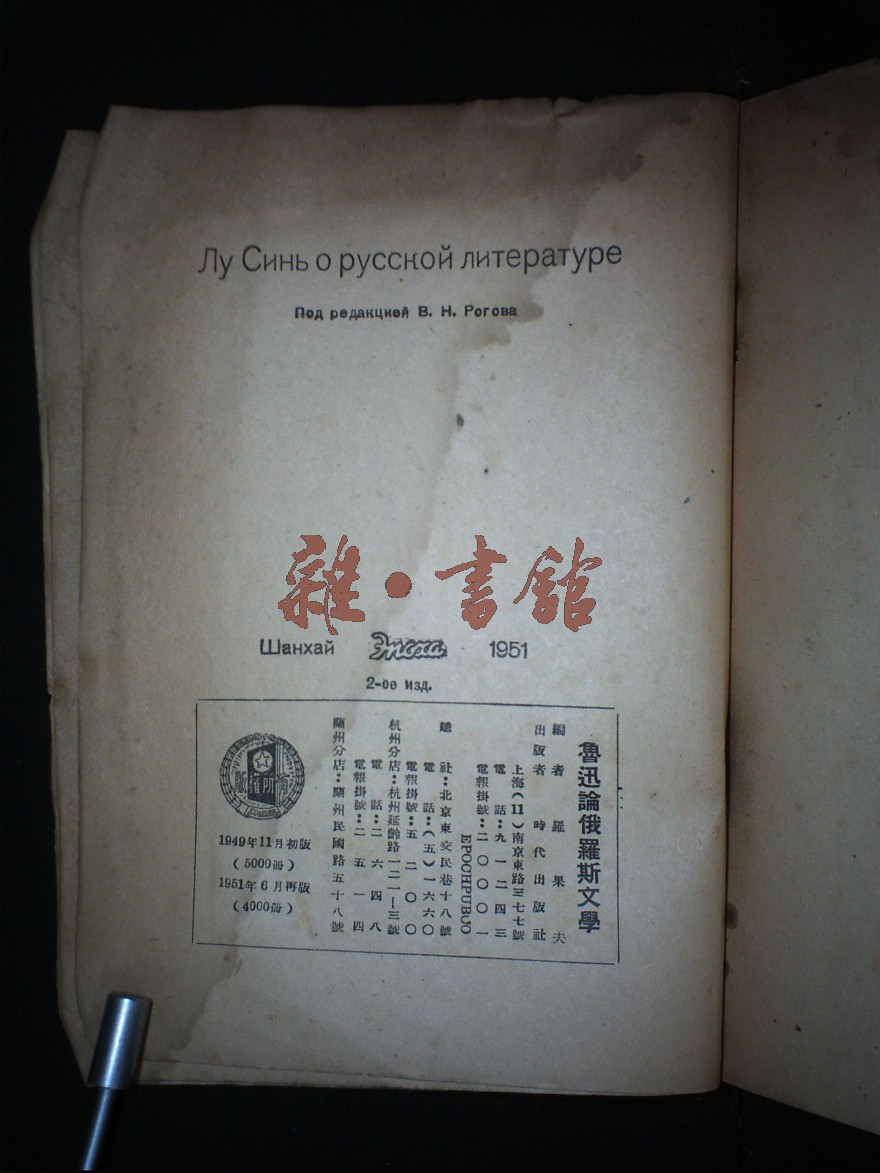 Лу Синь о русской литературе
Под редакцией В. Н. Рогова
雜·書館
Шанхай Эпоха 1951
2-ое изд.
魯迅論俄羅斯文學
編者 羅果夫
出版者 時代出版社
上海(11)南京東路三七七號
電話:九一二四三
電報掛號:二〇〇〇一
EPOCHPUBJO
總社:北京東交民巷十八號
電話:(五)一六六〇
電報掛號:五二〇〇
杭州分店:杭州延齡路一二一—三號
電話:二六四八
電報掛號:二五一四
蘭州分店:蘭州民國路五十八號
1949年11月初版
(5000冊)
1951年6月再版
(4000冊)